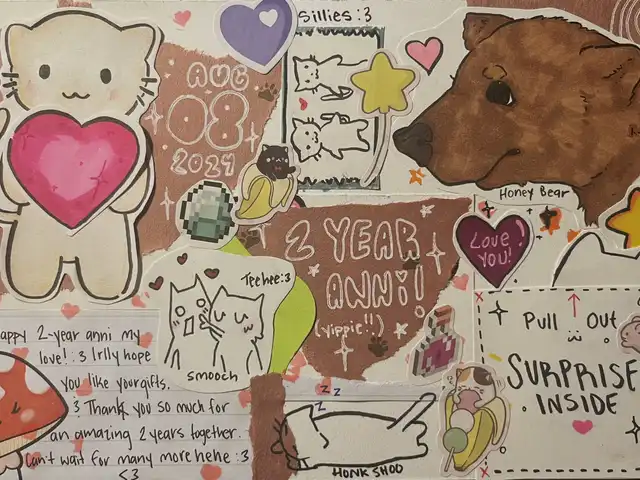 Sillies :3
AUG
08
2024
Honey Bear
2 YEAR
ANNi!
(yippie!!)
Love
YOU!
Teehee :3
smooch
appy 2-year anni my
love! :3 I rlly hope
you like your gifts.
:3 Thank you so much for
an amazing 2 years together.
Can't wait for many more hehe :3
<3
z z
z
HONK SHOO
Pull Out
SURPRISE
INSIDE